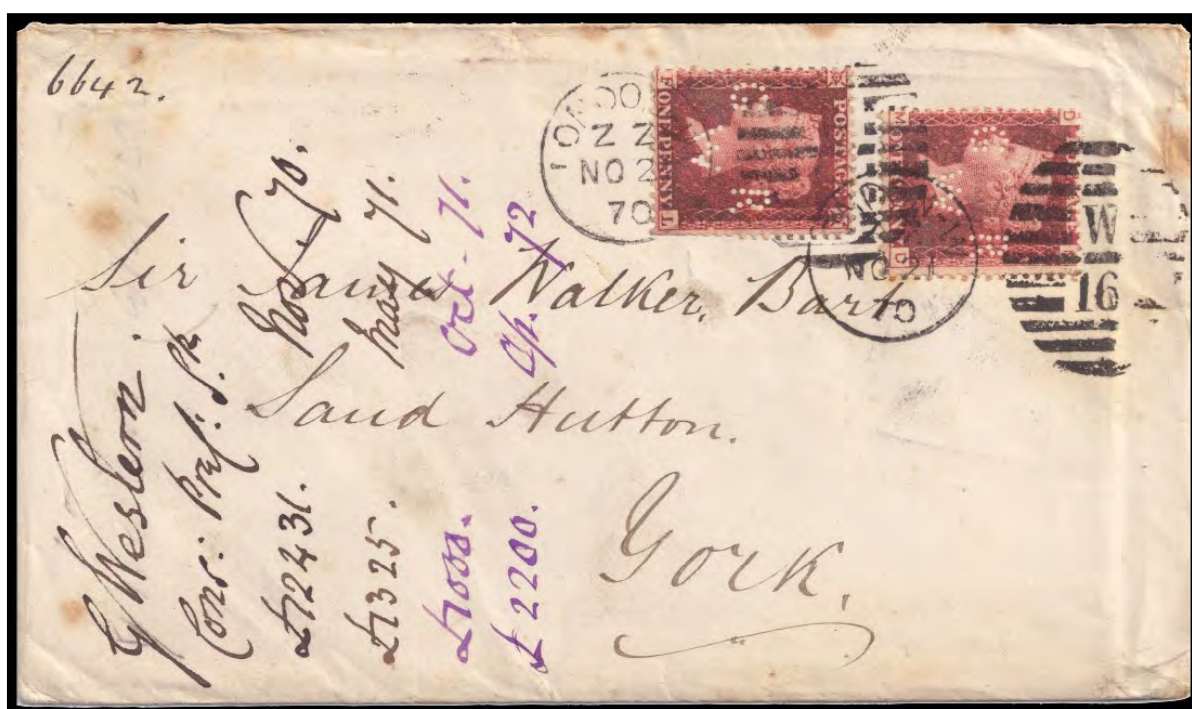 6642.
LONDON
Z Z
NO 2
70
POSTAGE
ONE PENNY
NO 21
70
W
16
Sir James Walker, Bart
Sand Hutton.
York.
G Western.
Cons: Pref: S.k
£12431. Nov. 70.
£1325. May 71.
£1000. Oct - 71.
£2200. Ap. 72